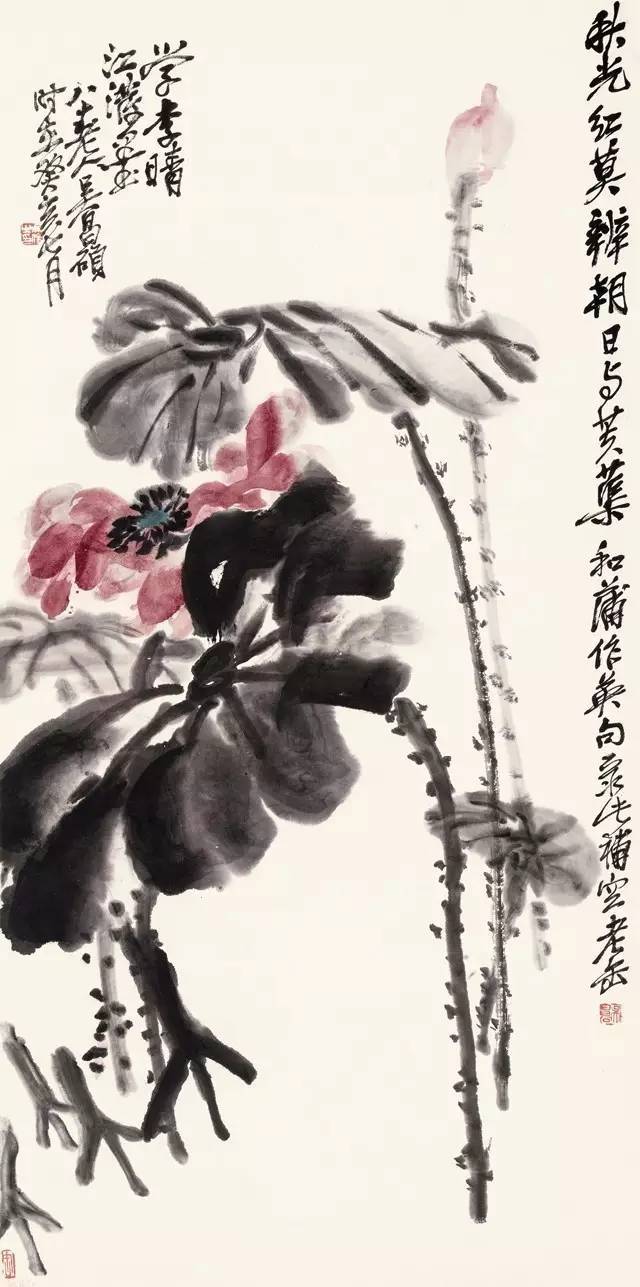 秋光红莫辨朝日与芙蕖 和蒲作英句录此補空老缶
学李晴
江泼墨
八十老人吴昌碩
时在癸亥七月